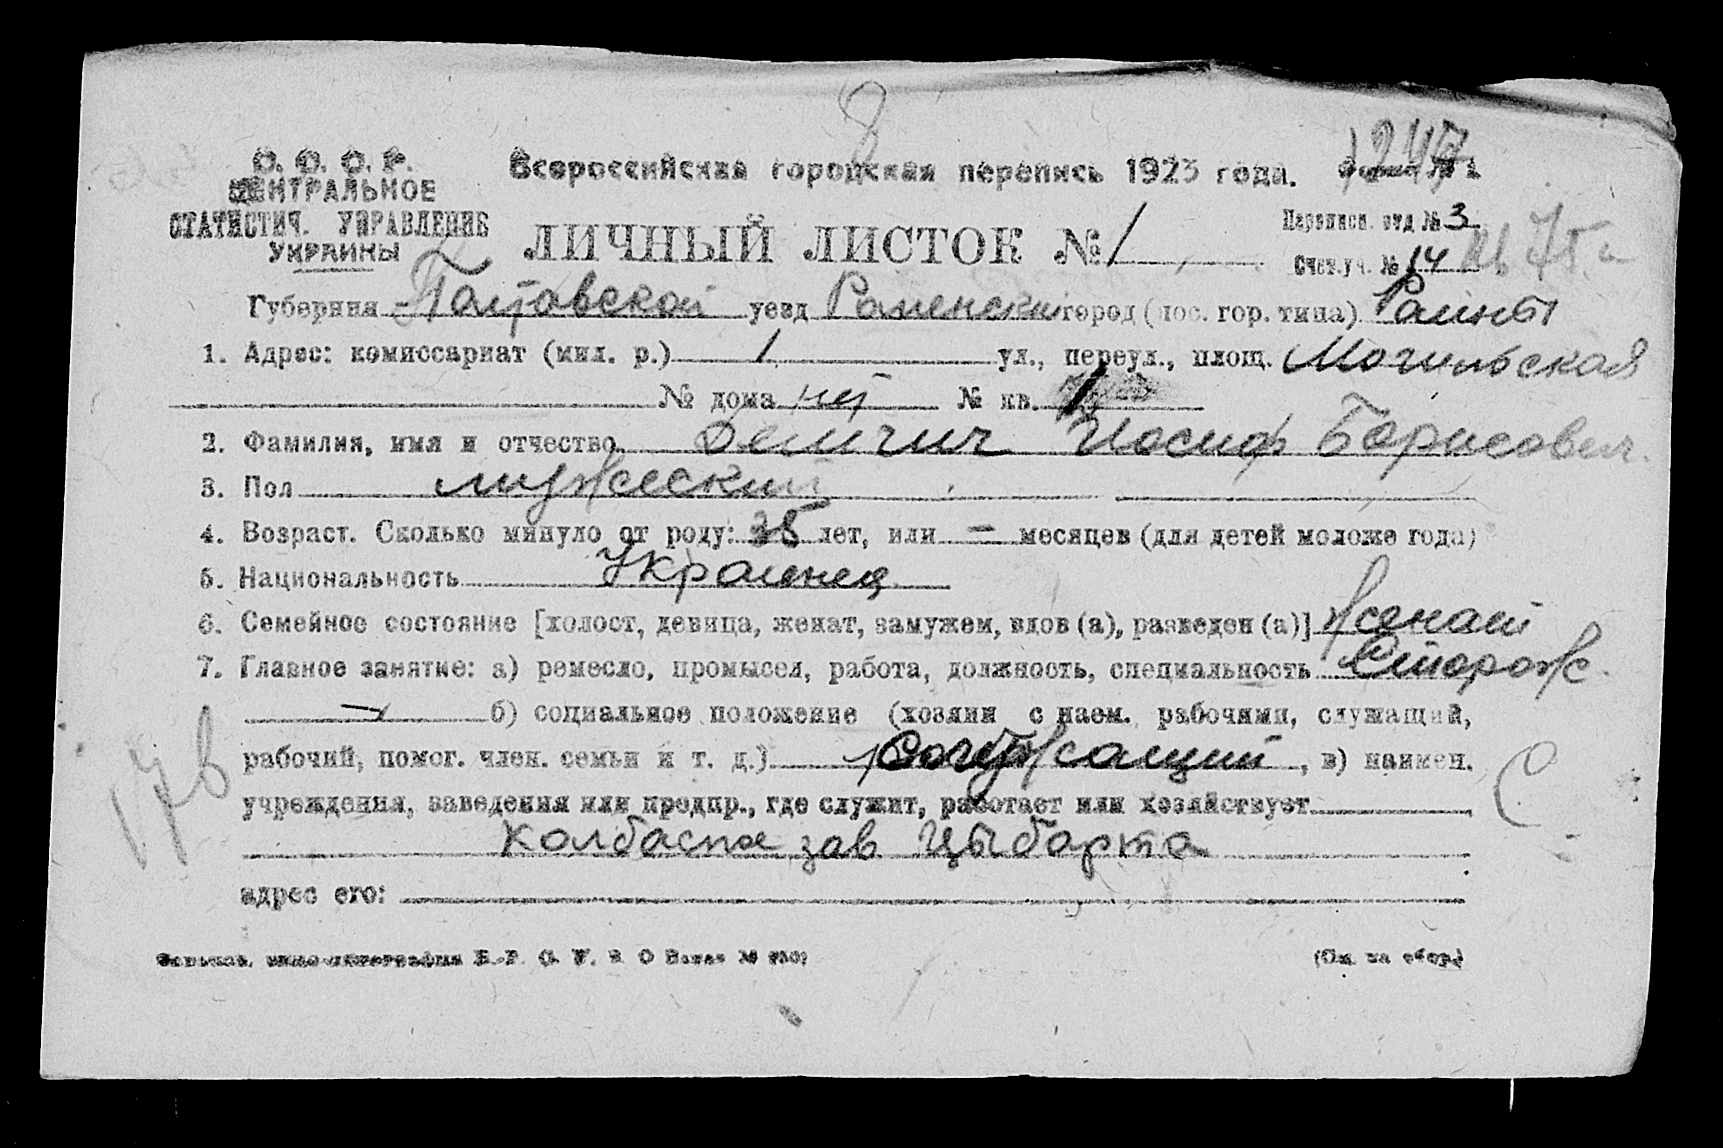 С. С. С. Р.
ЦЕНТРАЛЬНОЕ
СТАТИСТИЧ. УПРАВЛЕНИЕ
УКРАИНЫ
Всероссийская городская перепись 1923 года. Форма № 1
1247
ЛИЧНЫЙ ЛИСТОК № 1
Переписн. отд № 3
Счет. уч. № 14
Губерния Полтавской уезд Роменский город (пос. гор. типа) Ромны
1. Адрес: комиссариат (мил. р.) 1 ул., переул., площ.
№ дома нет № кв. 1
2. Фамилия, имя и отчество Иосиф Борисович
3. Пол мужеский
4. Возраст. Сколько минуло от роду: 35 лет, или — месяцев (для детей моложе года)
5. Национальность Украинец
6. Семейное состояние [холост, девица, женат, замужем, вдов (а), разведен (а)] Женат
7. Главное занятие: а) ремесло, промысел, работа, должность, специальность Сторож
б) социальное положение (хозяин с наем. рабочими, служащий,
рабочий, помог. член. семьи и т. д.) , в) наимен.
учреждения, заведения или предпр., где служит, работает или хозяйствует
Колбасня зав Цыбарта
адрес его:
178
(См. на обор.)